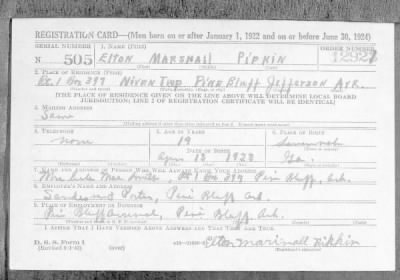 REGISTRATION CARD—(Men born on or after January 1, 1922 and on or before June 30, 1924)
SERIAL NUMBER 1. NAME (Print) ORDER NUMBER
N 505 ELTON MARSHALL PIPKIN 12927
2. PLACE OF RESIDENCE (Print)
Rt. 1 Box 397 NIVEN TWP. PINE Bluff Jefferson ARK.
[THE PLACE OF RESIDENCE GIVEN ON THE LINE ABOVE WILL DETERMINE LOCAL BOARD
JURISDICTION; LINE 2 OF REGISTRATION CERTIFICATE WILL BE IDENTICAL]
3. MAILING ADDRESS
Same
4. TELEPHONE 5. AGE IN YEARS 6. PLACE OF BIRTH
none 19 Savannah
DATE OF BIRTH
13 1923 Ga.
7. NAME AND ADDRESS OF PERSON WHO WILL ALWAYS KNOW YOUR ADDRESS
Mae Rt 1 Box 397 Pine Bluff, Ark.
8. EMPLOYER'S NAME AND ADDRESS
Sanders and Porter, Pine Bluff Ark.
9. PLACE OF EMPLOYMENT OR BUSINESS
Pine Bluff Arsenal, Pine Bluff, Ark.
I AFFIRM THAT I HAVE VERIFIED ABOVE ANSWERS AND THAT THEY ARE TRUE.
D. S. S. Form 1
Elton Pipkin